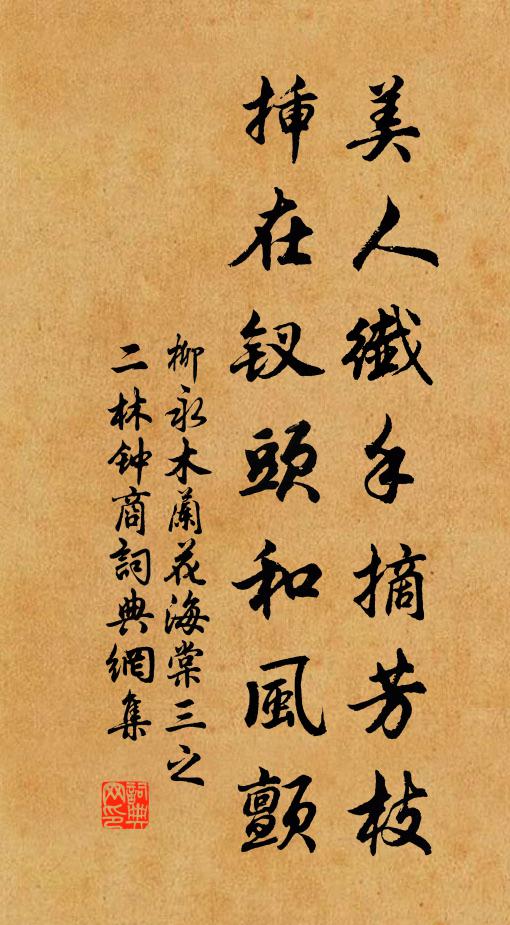 美人纖手摘芳枝
插在钗頭和風顫
柳永木蘭花海棠三之
二林钟商詞典網集
詞典网印